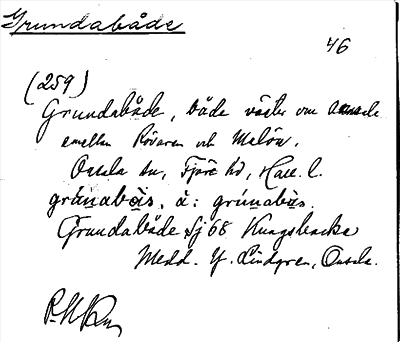 Grundabåde
46
(259)
Grundabåde, både väster om Onsala
emellan Rövaren och Malön.
Onsala sn, Fjäre hd, Hall. l.
grúnabås, ä: grúnabås.
Grundabåde Sj 68 Kungsbacka
Medd. Y. Lindgren, Onsala.